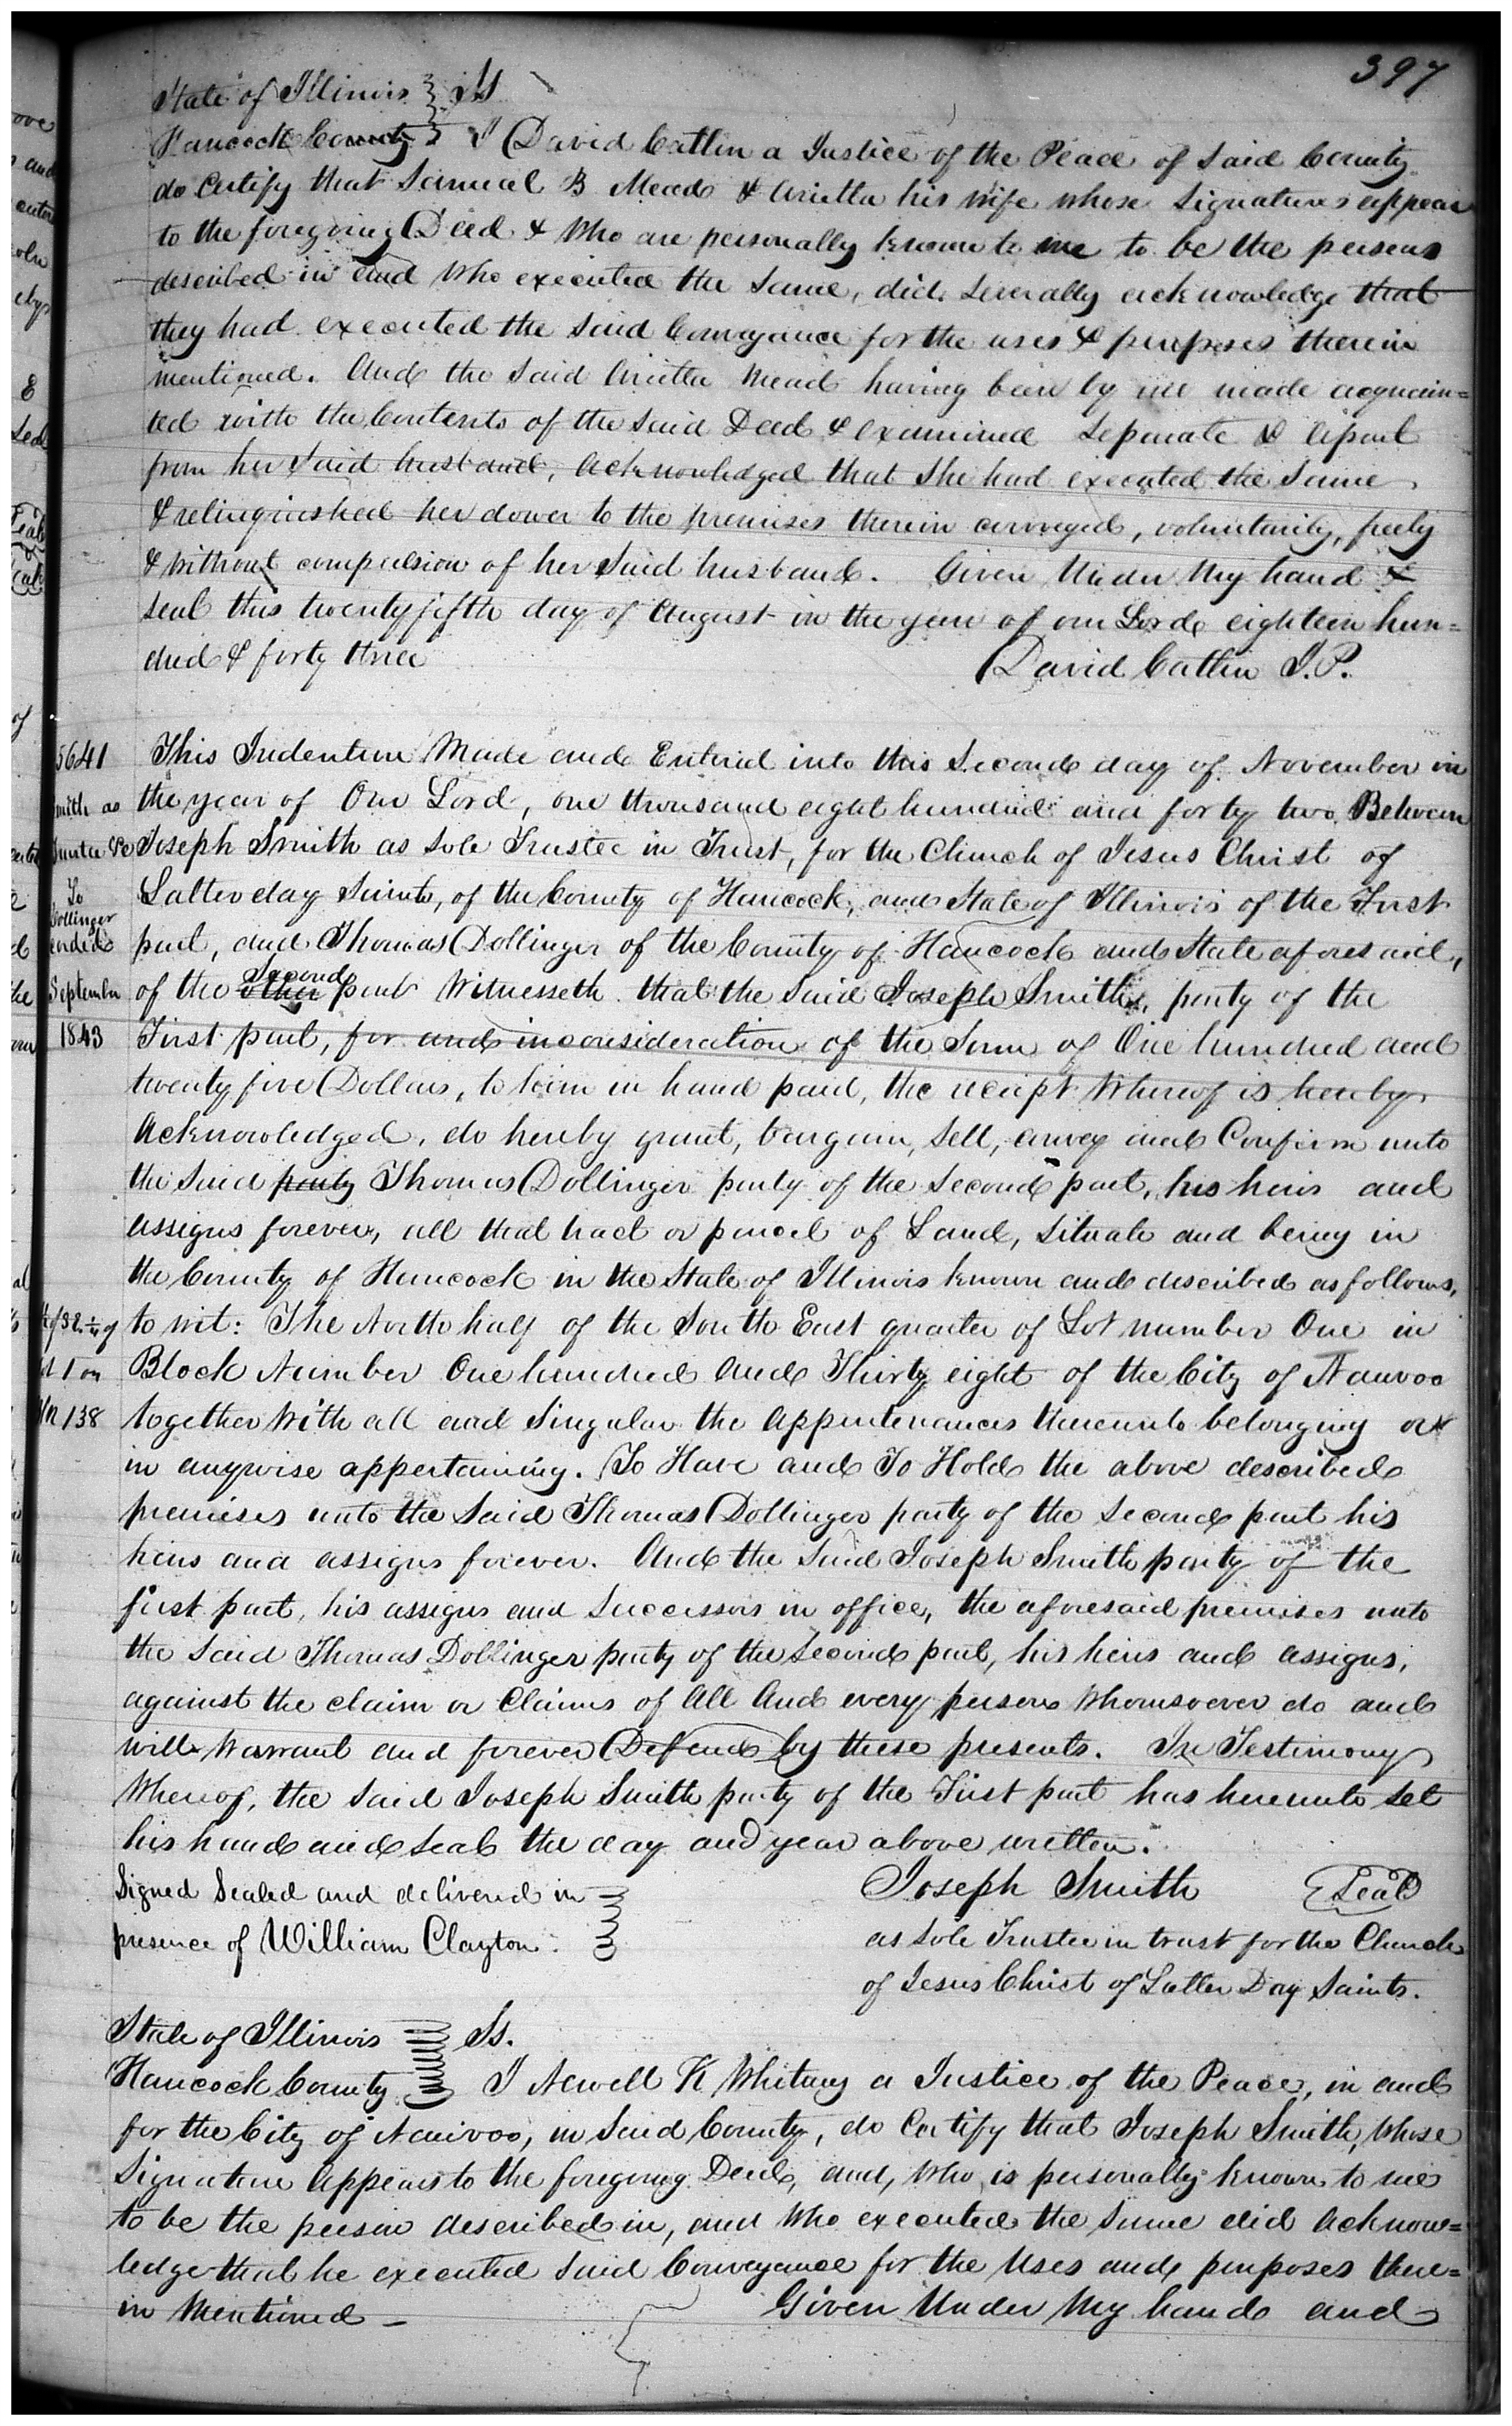 397
State of Illinois } SS
Hancock County } I David Catlin a Justice of the Peace of said County
do Certify that Samuel B Mead & Arietta his wife whose signatures appear
to the foregoing Deed & who are personally known to me to be the persons
described in and who executed the same, did severally acknowledge that
they had executed the said Conveyance for the uses & purposes therein
mentioned. And the said Arietta Mead having been by me made acquain=
ted with the Contents of the said Deed & examined separate & apart
from her said husband, acknowledged that she had executed the same
& relinquished her dower to the premises therein conveyed, voluntarily, freely
& without compulsion of her said husband. Given Under My hand &
seal this twenty fifth day of August in the year of our Lord eighteen hun=
dred & forty three
David Catlin J.P.
5641
Smith as
Trustee &c
To
Dollinger
September
1843
of SE 1/4 of
1 on
138
This Indenture Made and Entered into this Second day of November in
the year of Our Lord, one thousand eight hundred and forty two, Between
Joseph Smith as sole Trustee in Trust, for the Church of Jesus Christ of
Latter day Saints, of the County of Hancock, and State of Illinois of the First
part, and Thomas Dollinger of the County of Hancock and State aforesaid,
of the other Second part Witnesseth that the said Joseph Smith, party of the
First part, for and in consideration of the Sum of One hundred and
twenty five Dollars, to him in hand paid, the receipt Whereof is hereby
Acknowledged, do hereby grant, bargain, sell, convey and Confirm unto
the said party Thomas Dollinger party of the second part, his heirs and
assigns forever, all that tract or parcel of Land, situate and being in
the County of Hancock in the State of Illinois known and described as follows,
to wit: The North half of the South East quarter of Lot number One in
Block Number One hundred and Thirty eight of the City of Nauvoo
together With all and singular the appurtenances thereunto belonging or
in anywise appertaining. To Have and To Hold the above described
premises unto the said Thomas Dollinger party of the second part his
heirs and assigns forever. And the said Joseph Smith party of the
first part, his assigns and successors in office, the aforesaid premises unto
the said Thomas Dollinger party of the second part, his heirs and assigns,
against the claim or Claims of All And every person Whomsoever do and
will Warrant and forever Defend by these presents. In Testimony
Whereof, the said Joseph Smith party of the First part has hereunto set
his hand and seal the day and year above written.
Signed Sealed and delivered in }
presence of William Clayton. }
Joseph Smith Seal
as sole Trustee in trust for the Church
of Jesus Christ of Latter Day Saints.
State of Illinois } Ss.
Hancock County } I Newell K Whitney a Justice of the Peace, in and
for the City of Nauvoo, in said County, do Certify that Joseph Smith, Whose
Signature Appears to the foregoing Deed, and, Who is personally known to me
to be the person described in, and Who executed the same did Acknow=
ledge that he executed said Conveyance for the Uses and purposes there=
in Mentioned —
Given Under My hand and